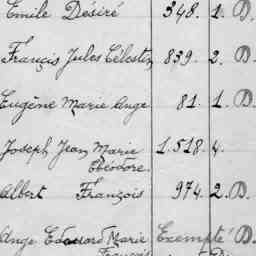 Emile Désiré 348. 1. D.
François Jules Célestin 839. 2. D.
Eugène Marie Ange 81. 1. D.
Joseph Jean Marie 1.518. 4.
Théodore.
Albert François 974. 2. D.
Ange Edouard Marie Exempté D.
François